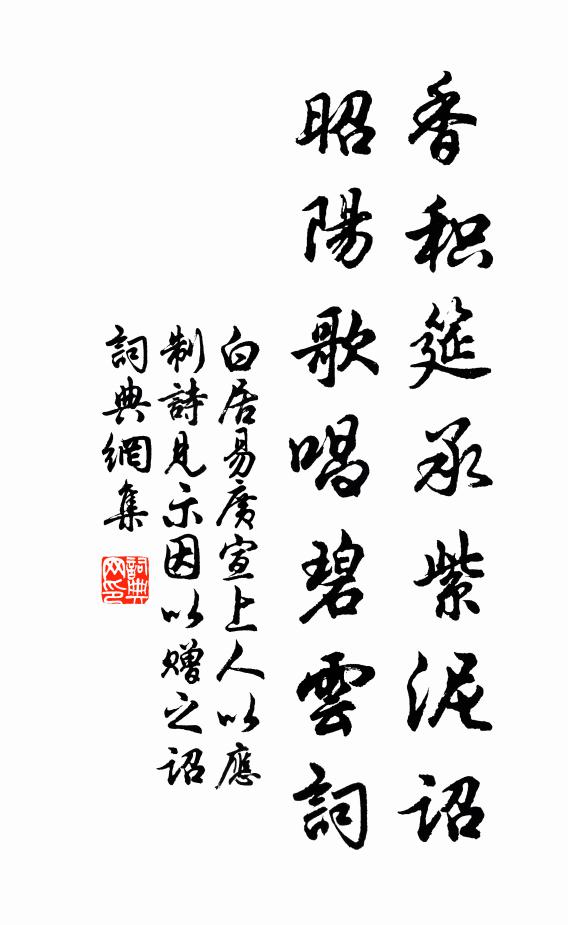 香积筵承紫泥詔
昭陽歌唱碧雲詞
白居易廣宣上人以應
制詩見示因以贈之詔
詞典網集
詞典网印